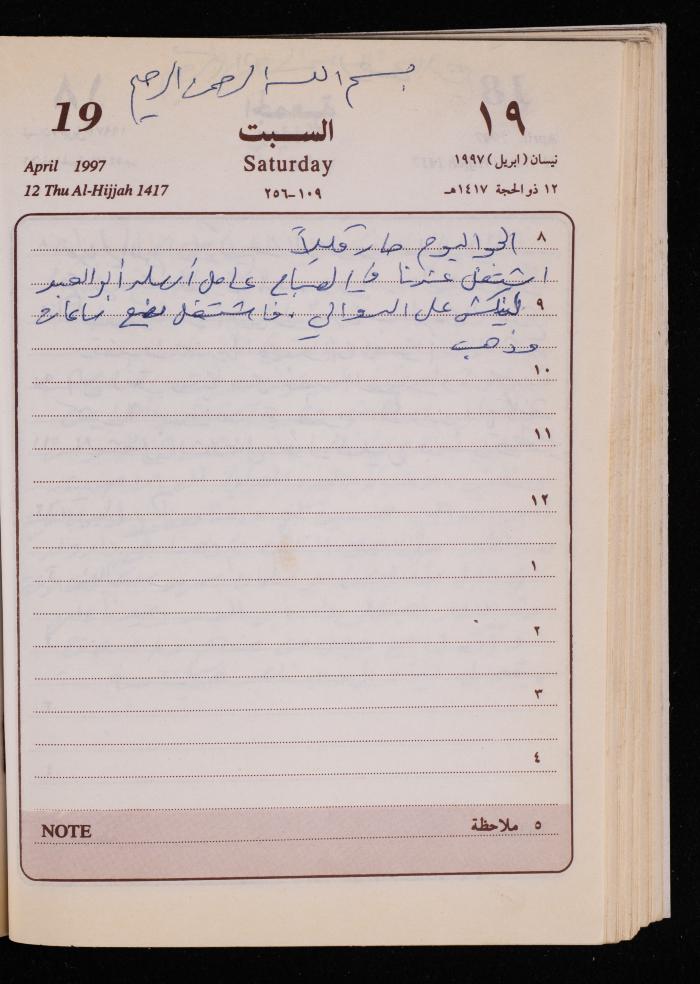 بسم الله الرحمن الرحيم
19
١٩
السبت
April 1997
Saturday
نيسان (ابريل) ١٩٩٧
12 Thu Al-Hijjah 1417
١٠٩-٢٥٦
١٢ ذو الحجة ١٤١٧هـ
٨
الجو اليوم حار قليلاً
اشتغل عندنا في الصباح عامل أرسله أبو العبد
٩
لينكش على الدوالي . فاشتغل بضع ساعات
وذهب
١٠
١١
١٢
١
٢
٣
٤
NOTE
٥ ملاحظة